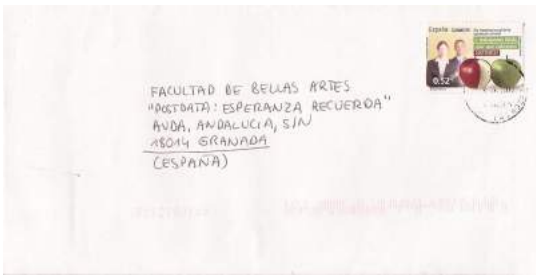 España CORREOS
0,52€
FACULTAD DE BELLAS ARTES
"POSTDATA: ESPERANZA RECUERDA"
AVDA. ANDALUCIA, S/N
18014 GRANADA
(ESPAÑA)